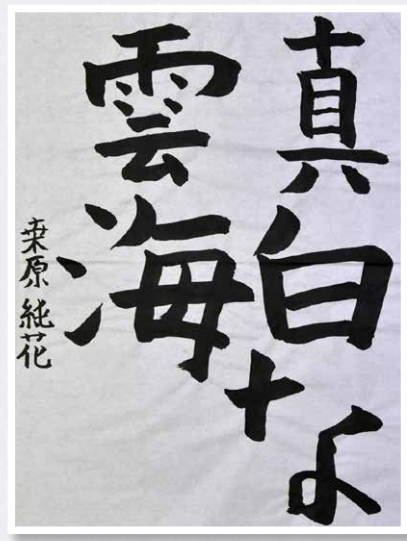 真白な
雲海
桒原 純花